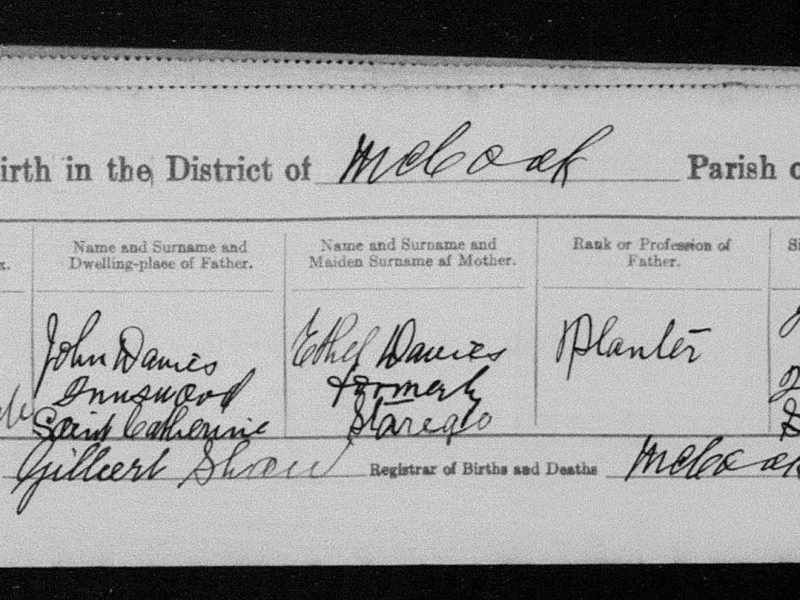 irth in the District of McCook Parish o
x.
Name and Surname and
Dwelling-place of Father.
Name and Surname and
Maiden Surname of Mother.
Rank or Profession of
Father.
Si
John Davies
Innswood
Saint Catherine
Ethel Davies
formerly
Planter
Gilbert Shaw Registrar of Births and Deaths McCook